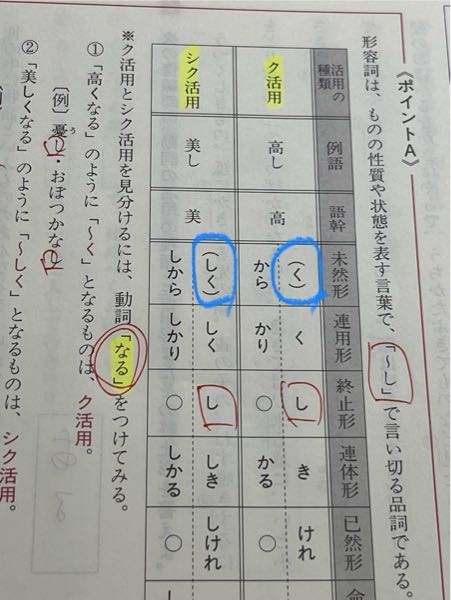 《ポイントA》
形容詞は、ものの性質や状態を表す言葉で、「〜し」で言い切る品詞である。
活用の種類
例語
語幹
未然形
連用形
終止形
連体形
已然形
命
ク活用
高し
高
(く)
く
し
き
けれ
から
かり
○
かる
○
シク活用
美し
美
(しく)
しく
し
しき
しけれ
しから
しかり
○
しかる
○
※ク活用とシク活用を見分けるには、動詞「なる」をつけてみる。
①「高くなる」のように「〜く」となるものは、ク活用。
〔例〕憂し・おぼつかなし
う
②「美しくなる」のように「〜しく」となるものは、シク活用。